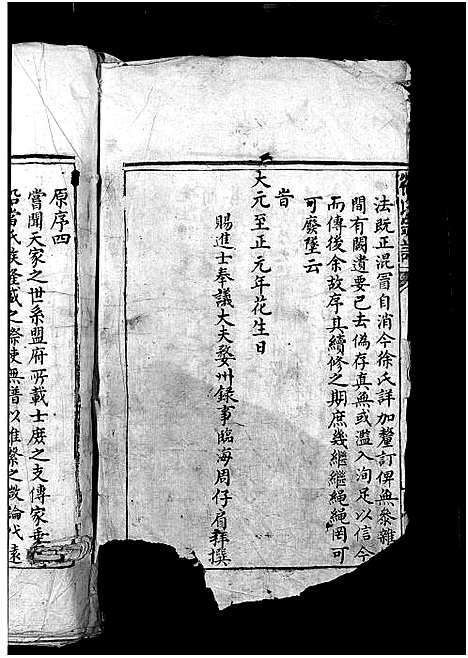 法既正混冐自消今徐氏詳加釐訂俾無叅雜
間有闕遺要已去偽存真無或濫入洵足以信今
而傳後余故序其續修之期庶幾繼繼繩繩罔可
可廢墜云
旹
大元至正元年花生日
賜進士奉議大夫婺州錄事臨海周仔肩拜撰
原序四
嘗聞天家之世系盟府所載士庶之支傳家乗
氏族隆盛之際使無譜以維繫之數論代遠